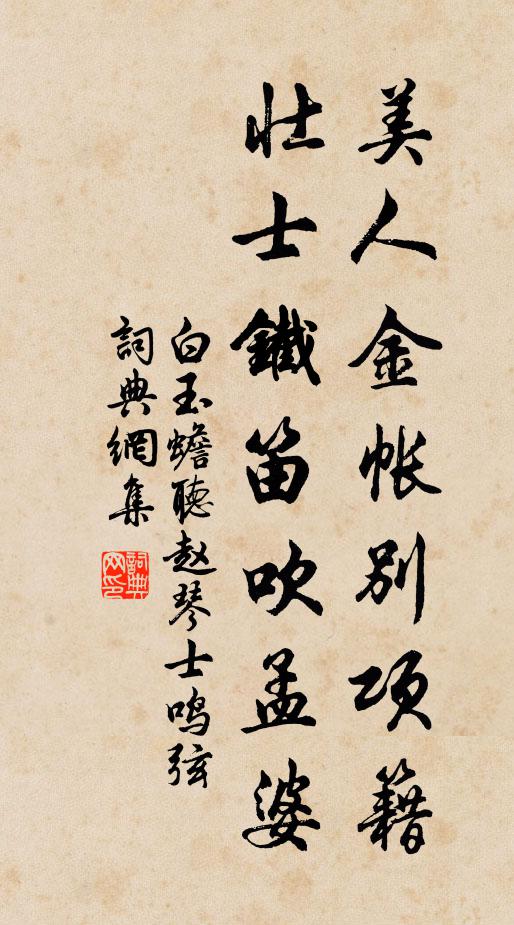 美人金帐别项籍
壮士鐵笛吹孟婆
白玉蟾聽赵琴士鸣弦
詞典網集
詞典网印